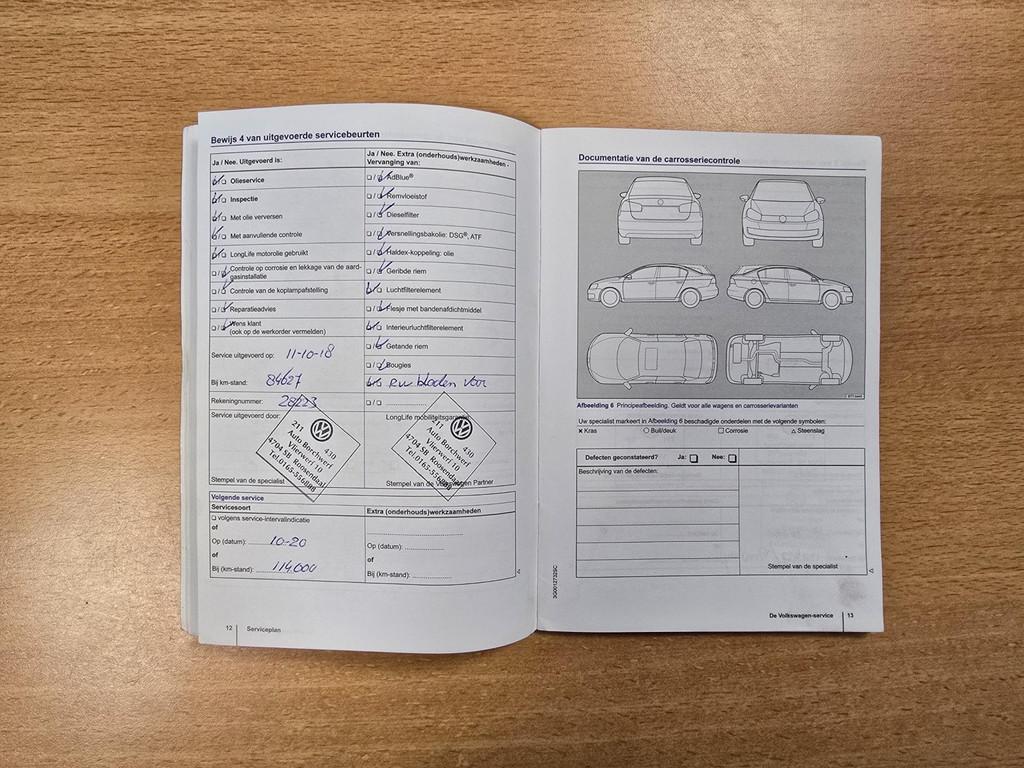 Bewijs 4 van uitgevoerde servicebeurten
Ja / Nee. Uitgevoerd is:
Olieservice
Inspectie
Met olie verversen
Met aanvullende controle
LongLife motorolie gebruikt
Controle op corrosie en lekkage van de aard-
gasinstallatie
Controle van de koplampafstelling
Reparatieadvies
Wens klant
(ook op de werkorder vermelden)
Service uitgevoerd op: 11-10-18
Bij km-stand: 84627
Rekeningnummer: 28223
Service uitgevoerd door:
211 430
Auto Borchwerf
Vlierwerf 10
4704 SB Roosendaal
Tel.0165-556888
Stempel van de specialist
Ja / Nee. Extra (onderhouds)werkzaamheden -
Vervanging van:
AdBlue®
Remvloeistof
Dieselfilter
Versnellingsbakolie: DSG®, ATF
Haldex-koppeling: olie
Geribde riem
Luchtfilterelement
Flesje met bandenafdichtmiddel
Interieurluchtfilterelement
Getande riem
Bougies
bladen voor
LongLife mobiliteitsgarantie
211 430
Auto Borchwerf
Vlierwerf 10
4704 SB Roosendaal
Tel.0165-556888
Stempel van de Volkswagen Partner
Volgende service
Servicesoort
volgens service-intervalindicatie
of
Op (datum): 10-20
of
Bij (km-stand): 114.000
Extra (onderhouds)werkzaamheden
Op (datum):
of
Bij (km-stand):
12 Serviceplan
Documentatie van de carrosseriecontrole
Afbeelding 6 Principeafbeelding. Geldt voor alle wagens en carrosserievarianten
Uw specialist markeert in Afbeelding 6 beschadigde onderdelen met de volgende symbolen:
× Kras ○ Buil/deuk □ Corrosie △ Steenslag
Defecten geconstateerd? Ja: Nee:
Beschrijving van de defecten:
Stempel van de specialist
3G0012732SC
De Volkswagen-service 13